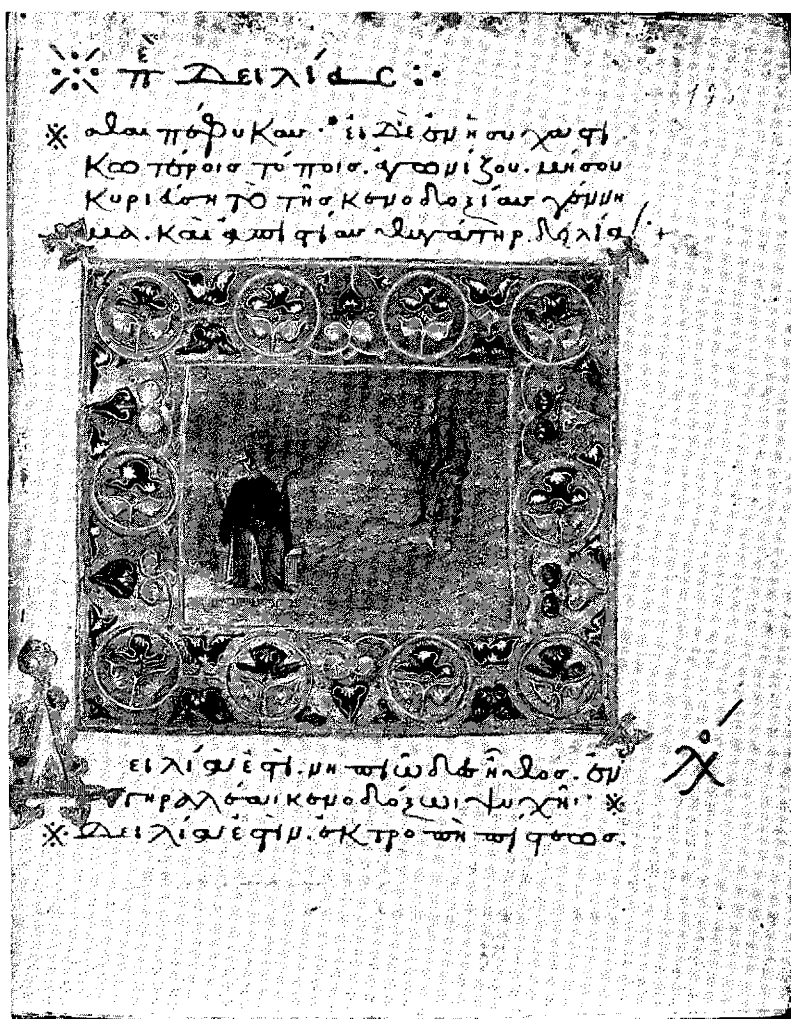 π ε Δειλίας :·
σθαι πέφυκαν· εἰ δὲ ἐν ἡσυχαστι
κωτέροις τόποις. ἀγωνίζου. μή σου
κυριεύση τὸ τῆς κενοδοξίας γέννη
μα. καὶ ἀπιστίας θυγάτηρ. δηλία
Δειλία ἐστὶ. νηπιῶδες ἦθος. ἐν
γηραλέαι κενοδόξωι ψυχῆι·
Δειλία ἐστὶν. ἐκτροπὴ πίστεως.